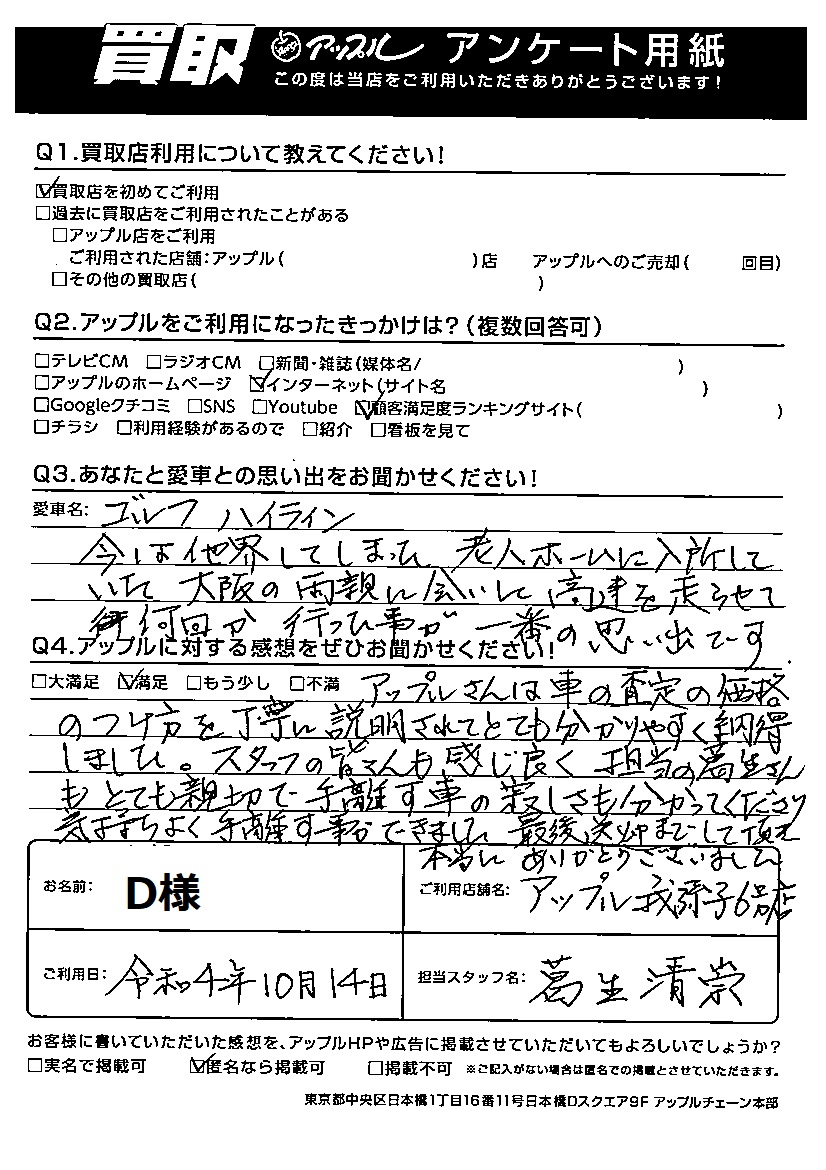 買取 アップル アンケート用紙
この度は当店をご利用いただきありがとうございます!
Q1.買取店利用について教えてください!
☑買取店を初めてご利用
□過去に買取店をご利用されたことがある
□アップル店をご利用
ご利用された店舗:アップル( )店 アップルへのご売却( 回目)
□その他の買取店( )
Q2.アップルをご利用になったきっかけは?(複数回答可)
□テレビCM □ラジオCM □新聞・雑誌(媒体名/ )
□アップルのホームページ ☑インターネット(サイト名 )
□Googleクチコミ □SNS □Youtube ☑顧客満足度ランキングサイト( )
□チラシ □利用経験があるので □紹介 □看板を見て
Q3.あなたと愛車との思い出をお聞かせください!
愛車名: ゴルフ ハイライン
今は他界してしまった 老人ホームに入所して
いた 大阪の両親に会いに 高速を走らせて
何回か 行った事が 一番の思い出です.
Q4.アップルに対する感想をぜひお聞かせください!
□大満足 ☑満足 □もう少し □不満 アップルさんは車の査定の価格
のつけ方を丁寧に説明されてとても分かりやすく納得
しました。スタッフの皆さんも感じ良く 担当の葛生さん
もとても親切で手離す車の寂しさも分かってくださり
気持ちよく手離す事ができました 最後送りまでして頂き
本当に ありがとうございました
お名前: D様
ご利用店舗名: アップル我孫子6号店
ご利用日: 令和4年10月14日
担当スタッフ名: 葛生清崇
お客様に書いていただいた感想を、アップルHPや広告に掲載させていただいてもよろしいでしょうか?
□実名で掲載可 ☑匿名なら掲載可 □掲載不可 ※ご記入がない場合は匿名での掲載とさせていただきます。
東京都中央区日本橋1丁目16番11号日本橋Dスクエア9F アップルチェーン本部